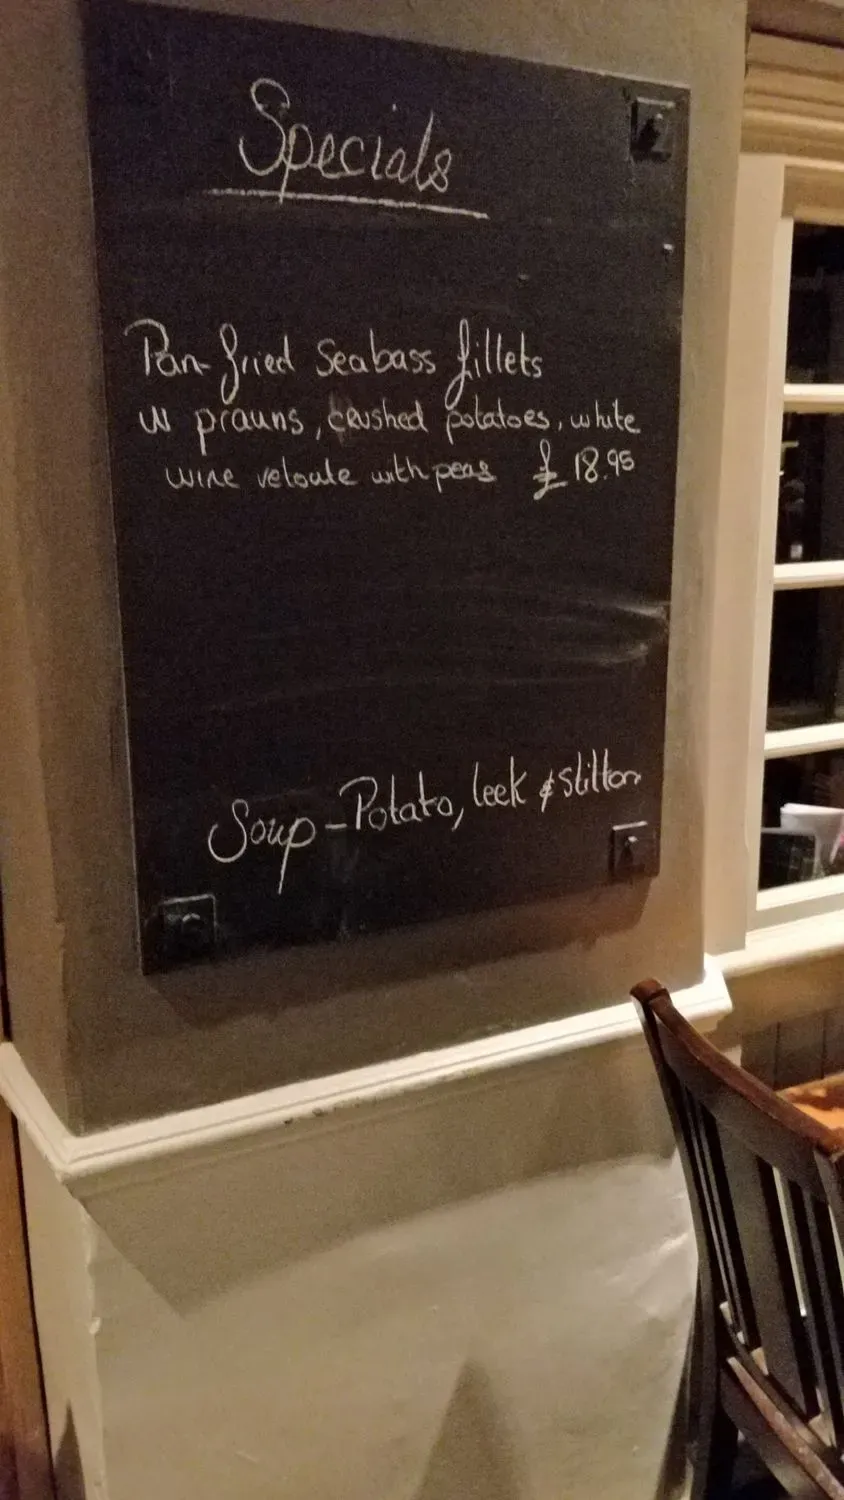 Specials
Pan-fried Seabass fillets
w prawns, crushed potatoes, white
wine veloute with peas £18.95
Soup-Potato, leek & Stilton